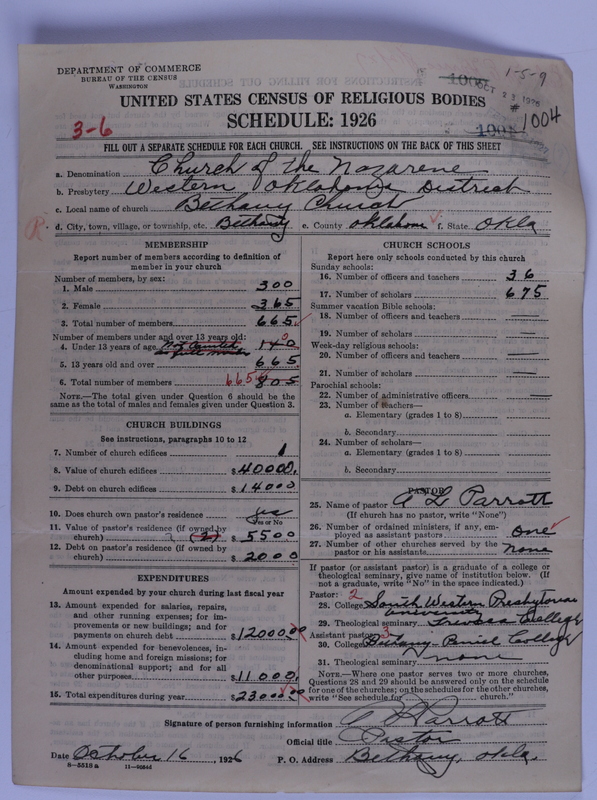 DEPARTMENT OF COMMERCE
BUREAU OF THE CENSUS
WASHINGTON
1-5-9
OCT 23 1926
# 1004
UNITED STATES CENSUS OF RELIGIOUS BODIES
SCHEDULE: 1926
3-6
FILL OUT A SEPARATE SCHEDULE FOR EACH CHURCH. SEE INSTRUCTIONS ON THE BACK OF THIS SHEET
a. Denomination Church of the Nazarene
b. Presbytery Western Oklahoma District
c. Local name of church Bethany Church
d. City, town, village, or township, etc. Bethany e. County Oklahoma f. State Okla
MEMBERSHIP
Report number of members according to definition of
member in your church
Number of members, by sex:
1. Male 300
2. Female 365
3. Total number of members 665
Number of members under and over 13 years old:
4. Under 13 years of age 140
5. 13 years old and over 665
6. Total number of members 665 805
NOTE.—The total given under Question 6 should be the
same as the total of males and females given under Question 3.
CHURCH BUILDINGS
See instructions, paragraphs 10 to 12
7. Number of church edifices 1
8. Value of church edifices $40000.
9. Debt on church edifices $14000
10. Does church own pastor's residence yes
Yes or No
11. Value of pastor's residence (if owned by
church) $5500
12. Debt on pastor's residence (if owned by
church) $2000
EXPENDITURES
Amount expended by your church during last fiscal year
13. Amount expended for salaries, repairs,
and other running expenses; for im-
provements or new buildings; and for
payments on church debt $12000.00
14. Amount expended for benevolences, in-
cluding home and foreign missions; for
denominational support; and for all
other purposes $11000.
15. Total expenditures during year $23000.00
CHURCH SCHOOLS
Report here only schools conducted by this church
Sunday schools:
16. Number of officers and teachers 36
17. Number of scholars 675
Summer vacation Bible schools:
18. Number of officers and teachers —
19. Number of scholars —
Week-day religious schools:
20. Number of officers and teachers —
21. Number of scholars —
Parochial schools:
22. Number of administrative officers —
23. Number of teachers—
a. Elementary (grades 1 to 8)
b. Secondary
24. Number of scholars—
a. Elementary (grades 1 to 8)
b. Secondary
PASTOR
25. Name of pastor A L Parrott
(If church has no pastor, write "None")
26. Number of ordained ministers, if any, em-
ployed as assistant pastors one
27. Number of other churches served by the
pastor or his assistants none
If pastor (or assistant pastor) is a graduate of a college or
theological seminary, give name of institution below. (If
not a graduate, write "No" in the space indicated.)
Pastor: 2
28. College South Western Presbyterian
University
29. Theological seminary Trevecca College
Assistant pastor: 3
30. College Bethany Peniel College
31. Theological seminary none
NOTE.—Where one pastor serves two or more churches,
Questions 28 and 29 should be answered only on the schedule
for one of the churches; on the schedules for the other churches,
write "See schedule for church.
Signature of person furnishing information A L Parrott
Official title Pastor
Date October 16, 1926 P. O. Address Bethany, Okla.
8—5518a